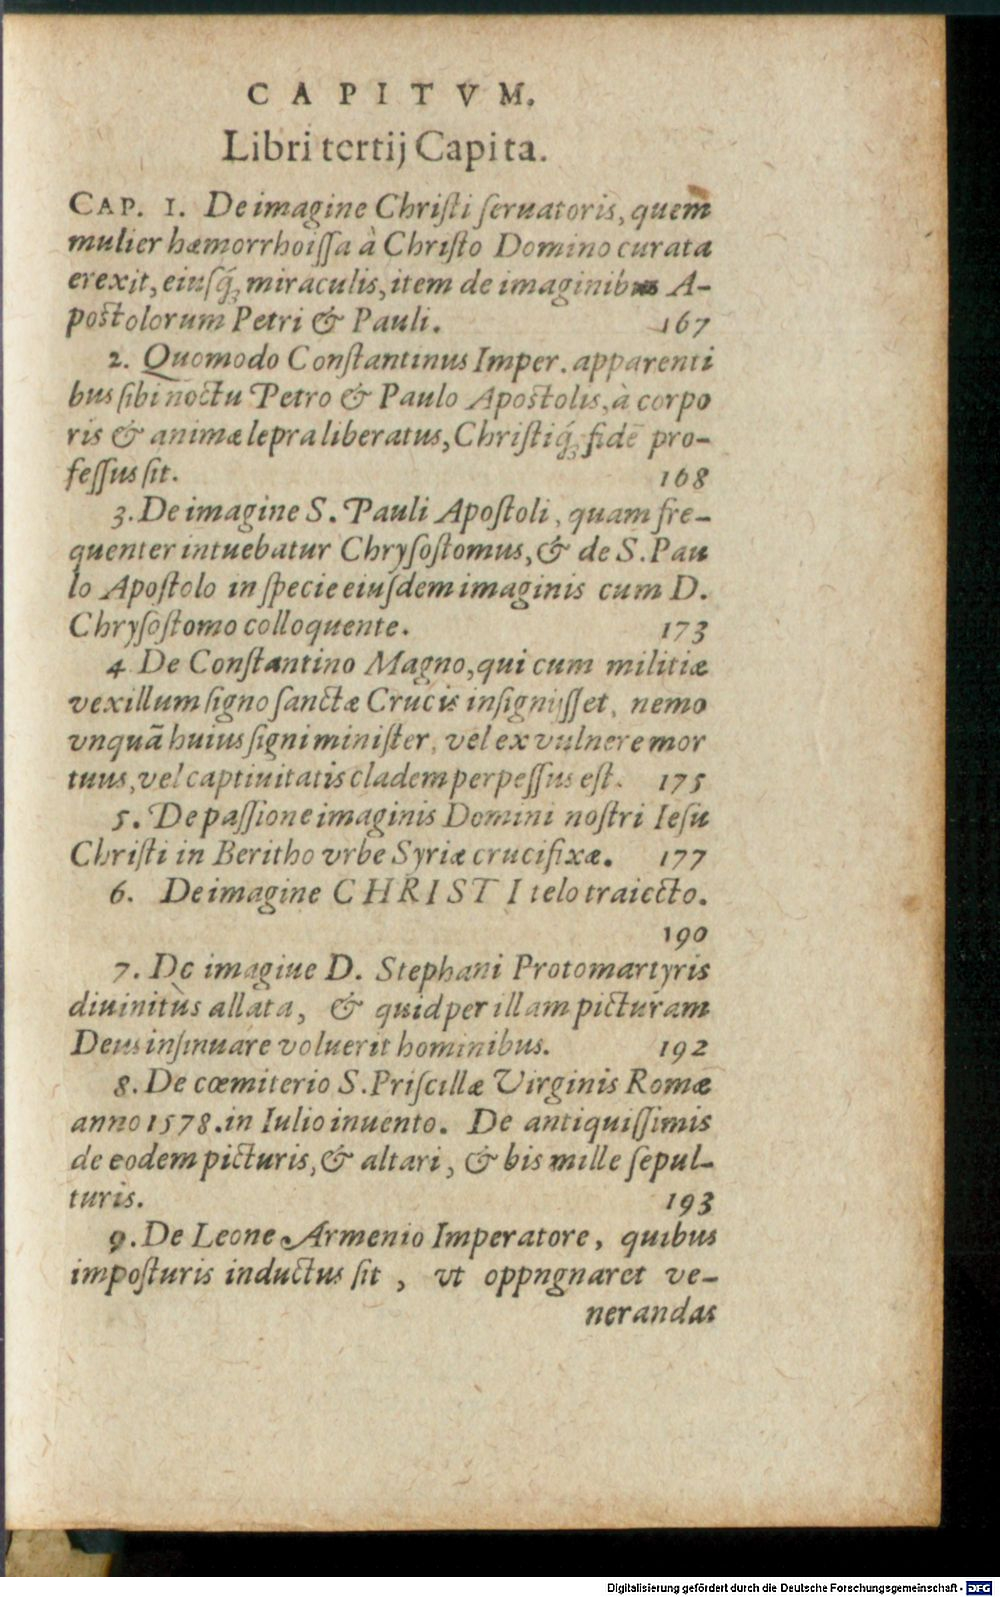 CAPITVM.
Libri tertij Capita.
CAP. I. De imagine Christi seruatoris, quem
mulier hæmorrhoissa à Christo Domino curata
erexit, eiusq́; miraculis, item de imaginibus A-
postolorum Petri & Pauli. 167
2. Quomodo Constantinus Imper. apparenti
bus sibi noctu Petro & Paulo Apostolis, à corpo
ris & animæ lepra liberatus, Christiq́; fidē pro-
fessus sit. 168
3. De imagine S. Pauli Apostoli, quam fre-
quenter intuebatur Chrysostomus, & de S. Pau
lo Apostolo in specie eiusdem imaginis cum D.
Chrysostomo colloquente. 173
4 De Constantino Magno, qui cum militiæ
vexillum signo sanctæ Crucis insignijsset, nemo
vnquā huius signi minister, vel ex vulnere mor
tuus, vel captiuitatis cladem perpessus est. 175
5. De passione imaginis Domini nostri Iesu
Christi in Beritho vrbe Syriæ crucifixæ. 177
6. De imagine CHRISTI telo traiecto.
190
7. De imagiue D. Stephani Protomartyris
diuinitùs allata, & quid per illam picturam
Deus insinuare voluerit hominibus. 192
8. De cœmiterio S. Priscillæ Virginis Romæ
anno 1578. in Iulio inuento. De antiquissimis
de eodem picturis, & altari, & bis mille sepul-
turis. 193
9. De Leone Armenio Imperatore, quibus
imposturis inductus sit, vt oppngnaret ve-
nerandas
Digitalisierung gefördert durch die Deutsche Forschungsgemeinschaft - DFG